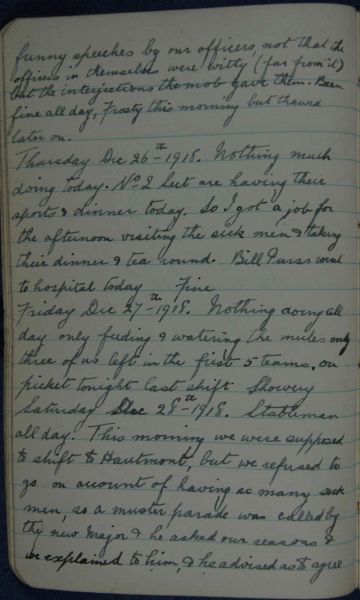 funny speeches by our officers, not that the
officers in themselves were witty (far from it)
but the interjections the mob gave them. Been
fine all day, Frosty this morning but thawed
later on.
Thursday Dec 26th - 1918. Nothing much
doing today. No 2 Sect are having their
sports & dinner today. So I got a job for
the afternoon visiting the sick men & taking
their dinner & tea round. Bill went
to hospital today Fine
Friday Dec 27th - 1918. Nothing doing all
day only feeding & watering the mules only
three of us left in the first 5 teams. on
picket tonight last shift Showery
Saturday Dec 28th - 1918. Stableman
all day. This morning we were supposed
to shift to Hautmont, but we refused to
go on account of having so many sick
men, so a muster parade was called by
the new Major & he asked our reasons &
we explained to him, & he advised us to agree